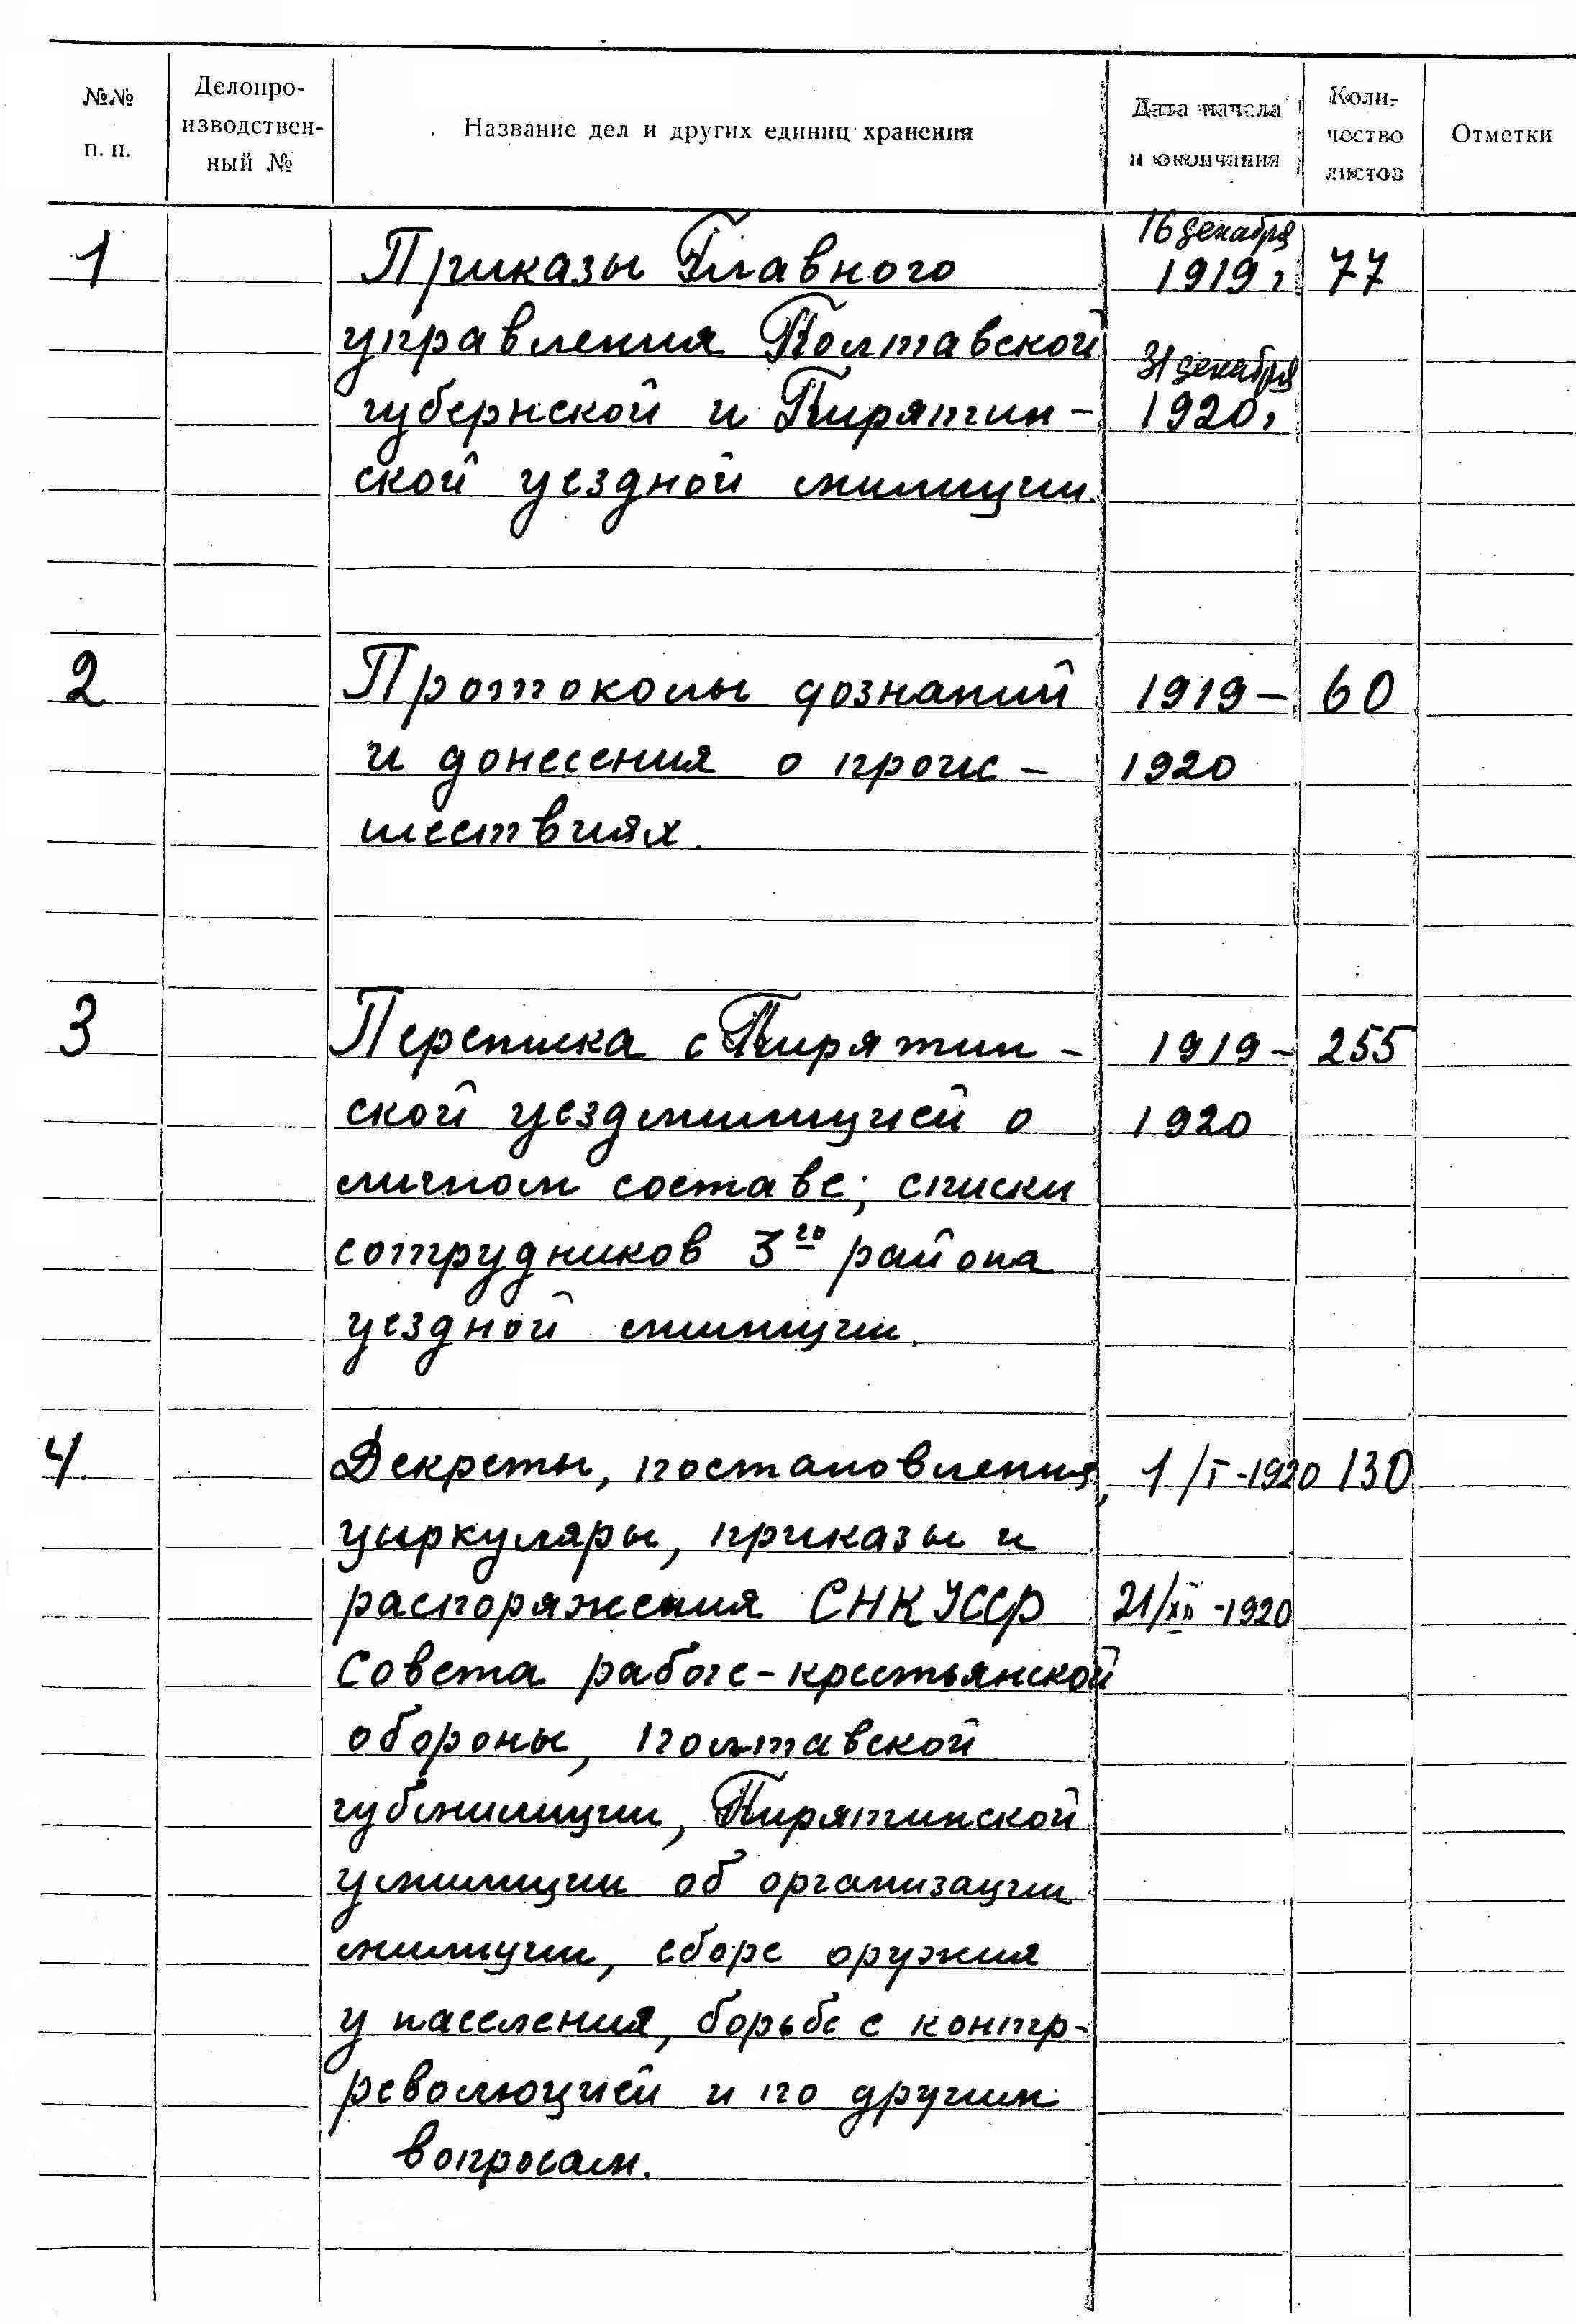 №№ п. п. Делопроизводственный № Название дел и других единиц хранения Дата начала и окончания Количество листов Отметки
1 Приказы Главного 16 декабря 1919 г 77
управления Полтавской
губернской и Пирятин- 31 декабря 1920г
ской уездной милиции.
2 Протоколы дознаний 1919- 60
и донесения о проис- 1920
шествиях.
3 Переписка с Пирятин- 1919- 255
ской уездмилицией о 1920
личном составе; списки
сотрудников 3го района
уездной милиции.
4. Декреты, постановления, 1/I-1920 130
цыркуляры, приказы и
распоряжения СНК УССР 21/XII-1920
Совета рабоче-крестьянской
обороны, полтавской
губмилиции, Пирятинской
умилиции об организации
милиции, сборе оружия
у населения, борьбе с контр-
революцией и по другим
вопросам.